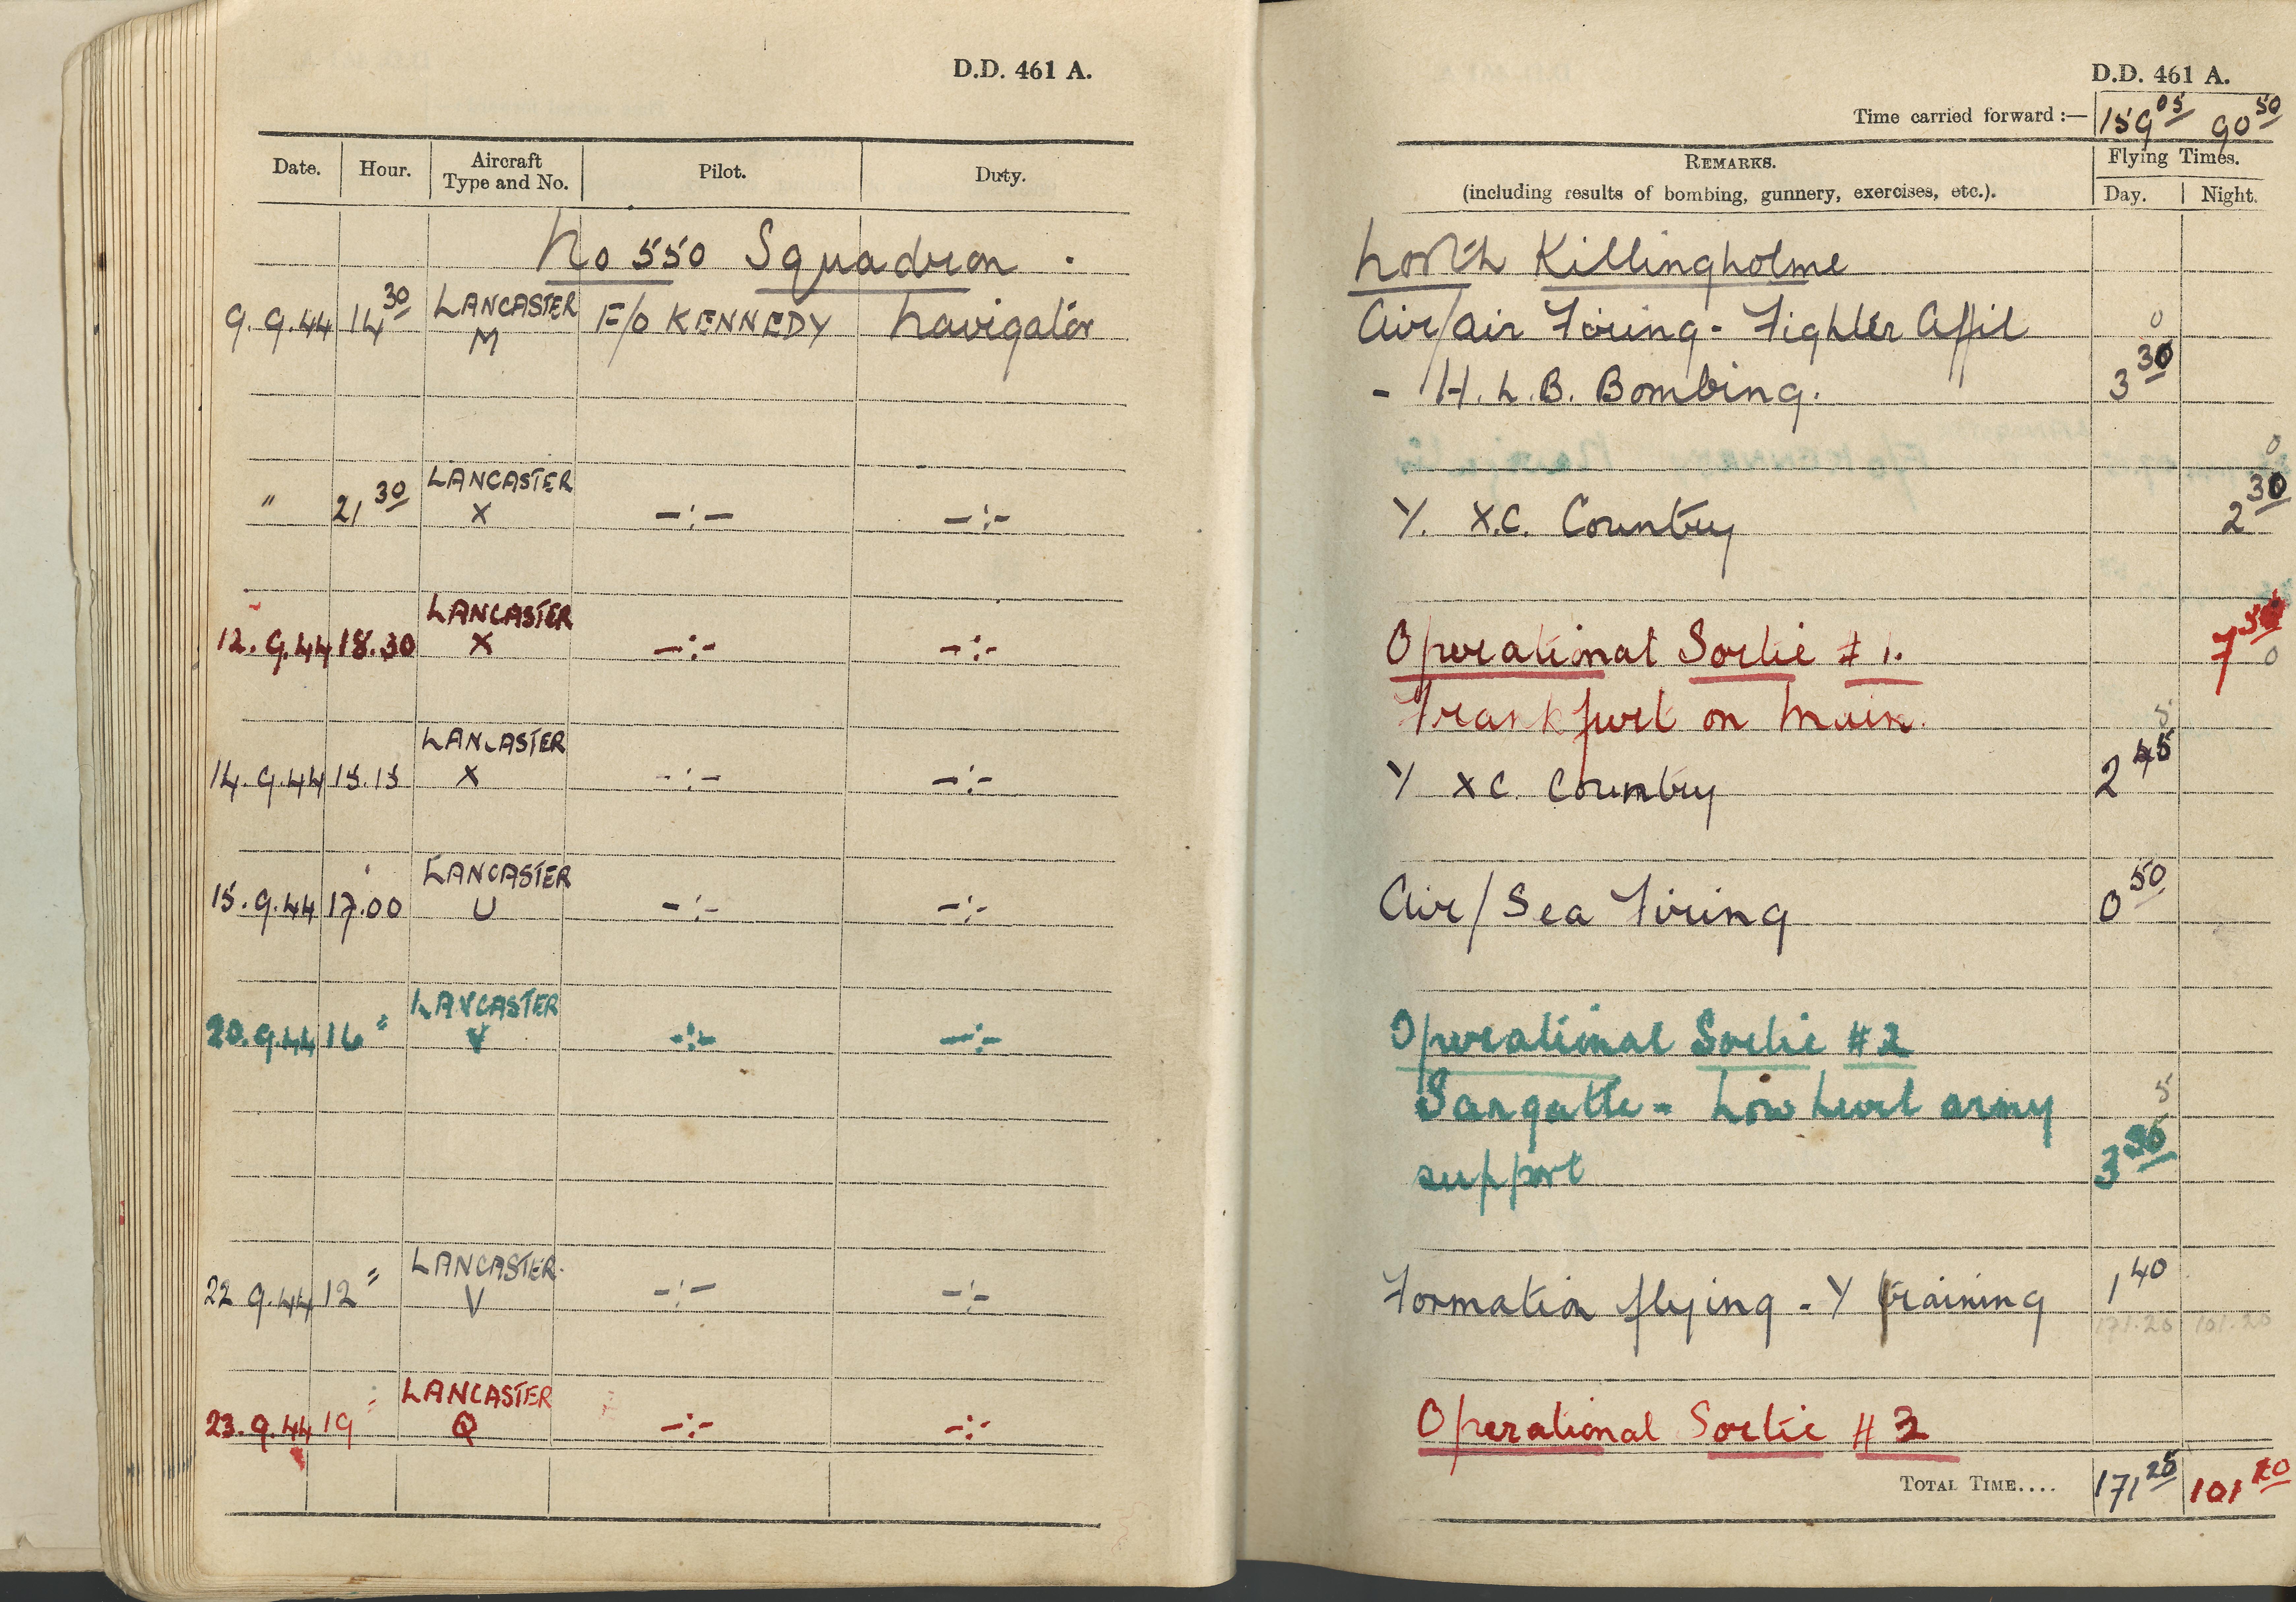 D.D. 461 A.
Date. Hour. Aircraft Type and No. Pilot. Duty.
No 550 Squadron.
9.9.44 14 30 LANCASTER M F/O KENNEDY Navigator
" 21 30 LANCASTER X -:- -:-
12.9.44 18.30 LANCASTER X -:- -:-
14.9.44 15.15 LANCASTER X -:- -:-
15.9.44 17.00 LANCASTER U -:- -:-
20.9.44 16 = LANCASTER V -:- -:-
22 9.44 12 = LANCASTER. V -:- -:-
23.9.44 19 = LANCASTER Q -:- -:-
D.D. 461 A.
Time carried forward :— 159 05 90 50
REMARKS. Flying Times.
(including results of bombing, gunnery, exercises, etc.). Day. Night.
North Killingholme
Air/air Firing - Fighter Affil 0
- H.L.B. Bombing. 3 30
0
Y. X.C. Country 2 30
Operational Sortie # 1. 7 30
0
Frankfurt on Main.
5
Y XC. Country 2 45
Air/Sea Firing 0 50
Operational Sortie # 2
Sangatte - Low Level army 5
support 3 35
Formation flying - Y training 1 40
171.25 101.20
Operational Sortie # 3
TOTAL TIME.... 171 25 101 20